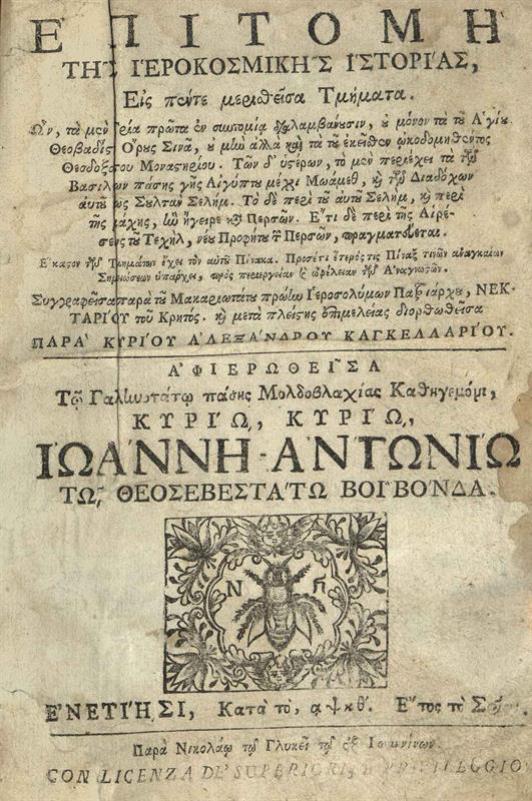 ΕΠΙΤΟΜΗ
ΤΗ͂Σ ἹΕΡΟΚΟΣΜΙΚΗ͂Σ ἹΣΤΟΡΊΑΣ,
Εἰς πέντε μερισθεῖσα Τμήματα.
Ὧν, τὰ μὲν τρία πρῶτα ἐν συντομίᾳ διαλαμβάνουσιν, οὐ μόνον τὰ τοῦ Ἁγίου
Θεοβαδίς Ὄρους Σινᾶ, οὐ μὴν ἀλλὰ καὶ τὰ τοῦ ἐκεῖθεν ᾠκοδομηθέντος
Θεοδοξάτου Μοναστηρίου. Τῶν δ' ὑστέρων, τὸ μὲν περιέχει τὰ τῶν
Βασιλέων πάσης γῆς Αἰγύπτου μέχρι Μωάμεθ, καὶ τῶν Διαδόχων
αὐτοῦ ὡς Σουλτὰν Σελήμ. Τὸ δὲ περὶ τοῦ αὐτοῦ Σελήμ, καὶ περὶ
τῆς μάχης, ἣν ἤγειρε κατὰ Περσῶν. Ἔτι δὲ περὶ τῆς Αἱρέ-
σεως τοῦ Τεχήλ, νέου Προφήτου τῶν Περσῶν, πραγματεύεται.
Ἕκαστον τῶν Τμημάτων ἔχει τὸν αὑτοῦ Πίνακα. Προσέτι ὕστερός τις Πίναξ τινῶν ἀναγκαίων
Σημειώσεων ὑπάρχει, πρὸς περιεργείαν καὶ ὠφέλειαν τῶν Ἀναγνωστῶν.
Συγγραφεῖσα παρὰ τοῦ Μακαριωτάτου πρώην Ἱεροσολύμων Πατριάρχου, ΝΕΚ-
ΤΑΡΊΟΥ τοῦ Κρητός. καὶ μετὰ πλείστης ἐπιμελείας διορθωθεῖσα
ΠΑΡᾺ ΚΥΡΊΟΥ ἈΛΕΞΆΝΔΡΟΥ ΚΑΓΚΕΛΛΑΡΊΟΥ.
ἈΦΙΕΡΩΘΕΙ͂ΣΑ
Τῷ Γαληνοτάτῳ πάσης Μολδοβλαχίας Καθηγεμόνι,
ΚΥΡΊΩ, ΚΥΡΊΩ,
ἸΩΆΝΝΗ ἈΝΤΩΝΊΩ
ΤΩ͂, ΘΕΟΣΕΒΕΣΤΆΤΩ ΒΟΪΒΌΝΔΑ.
Ν Γ
ἘΝΕΤΊΗΣΙ, Κατὰ τό, αψκθ. Ἔτος τὸ
Παρὰ Νικολάῳ τῷ Γλυκεῖ τῷ ἐξ Ἰωαννίνων.
CON LICENZA DE' SUPERIORI, E PRIVILEGGIO